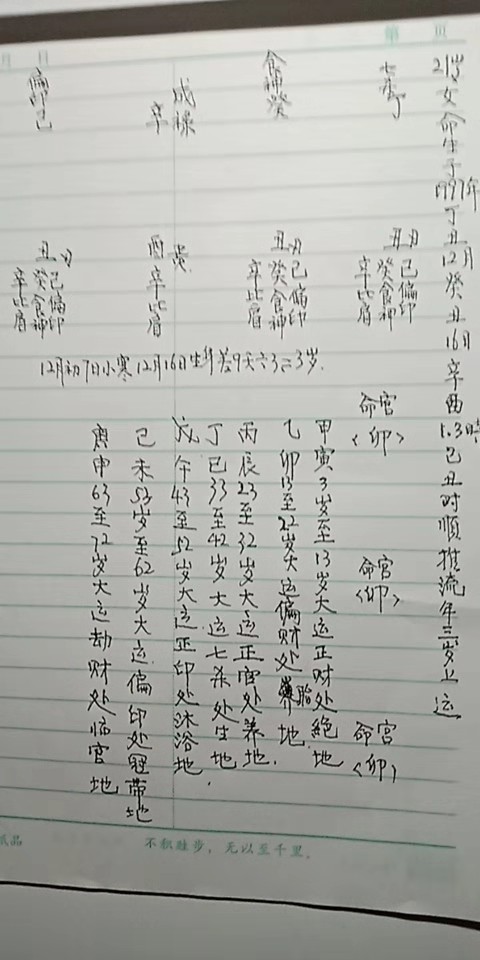 第 页
月 日
21岁女命生于1997年丁丑12月癸丑16日辛酉1.3時己丑时順推流年三岁上运
七杀丁
食神癸
辛
偏印己
丑
己偏印
癸食神
辛比肩
丑
己偏印
癸食神
辛比肩
酉
辛比肩
丑
己偏印
癸食神
辛比肩
12月初7日小寒12月16日生年差9天六3=3岁.
命宫
<卯>
命宫
<卯>
命宫
<卯>
甲寅3岁至13岁大运正财处絕地
乙卯13至22岁大运偏财处胎地.
丙辰23至32岁大运正官处养地.
丁巳33至42岁大运七杀处生地.
戊午43至52岁大运正印处沐浴地
己未53岁至62岁大运偏印处冠带地
庚申63至72岁大运劫财处临官地
纸品
不积跬步，无以至千里.